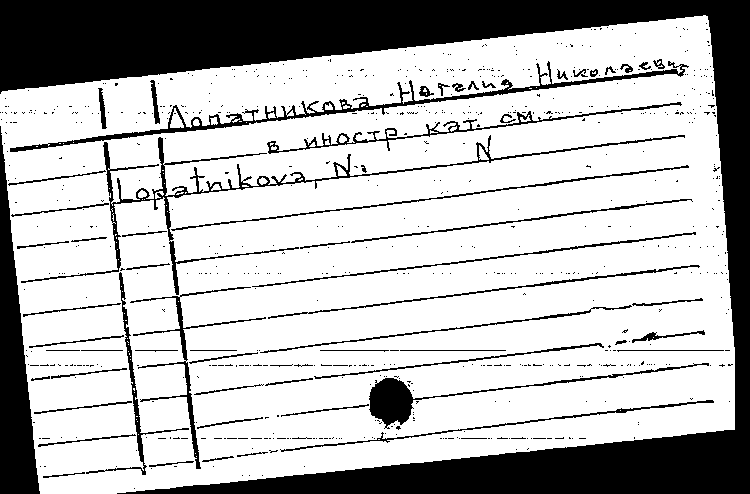 Лопатникова, Наталия Николаевна
в иностр. кат. см.:
Lopatnikova, N. N